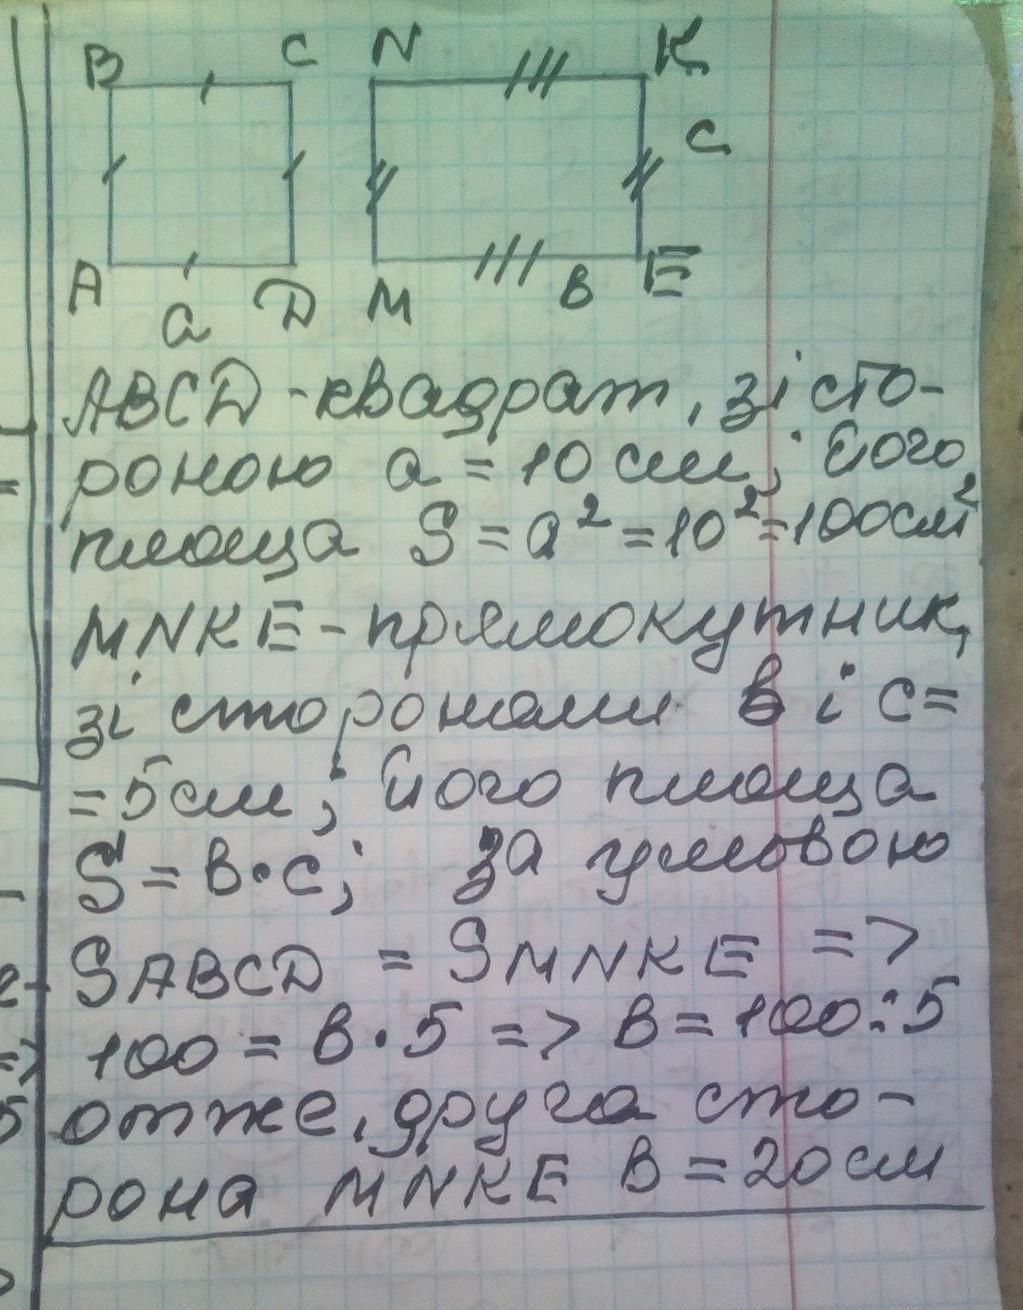 B C N K
C
A a D M B E
ABCD - квадрат, зі сто-
роною a = 10 см; його
площа S = a² = 10² = 100см²
MNKE - прямокутник,
зі сторонами в і c =
= 5 см; його площа
S = в · c; за умовою
SABCD = SMNKE =>
100 = в · 5 => в = 100 : 5
отже, друга сто-
рона MNKE в = 20 см